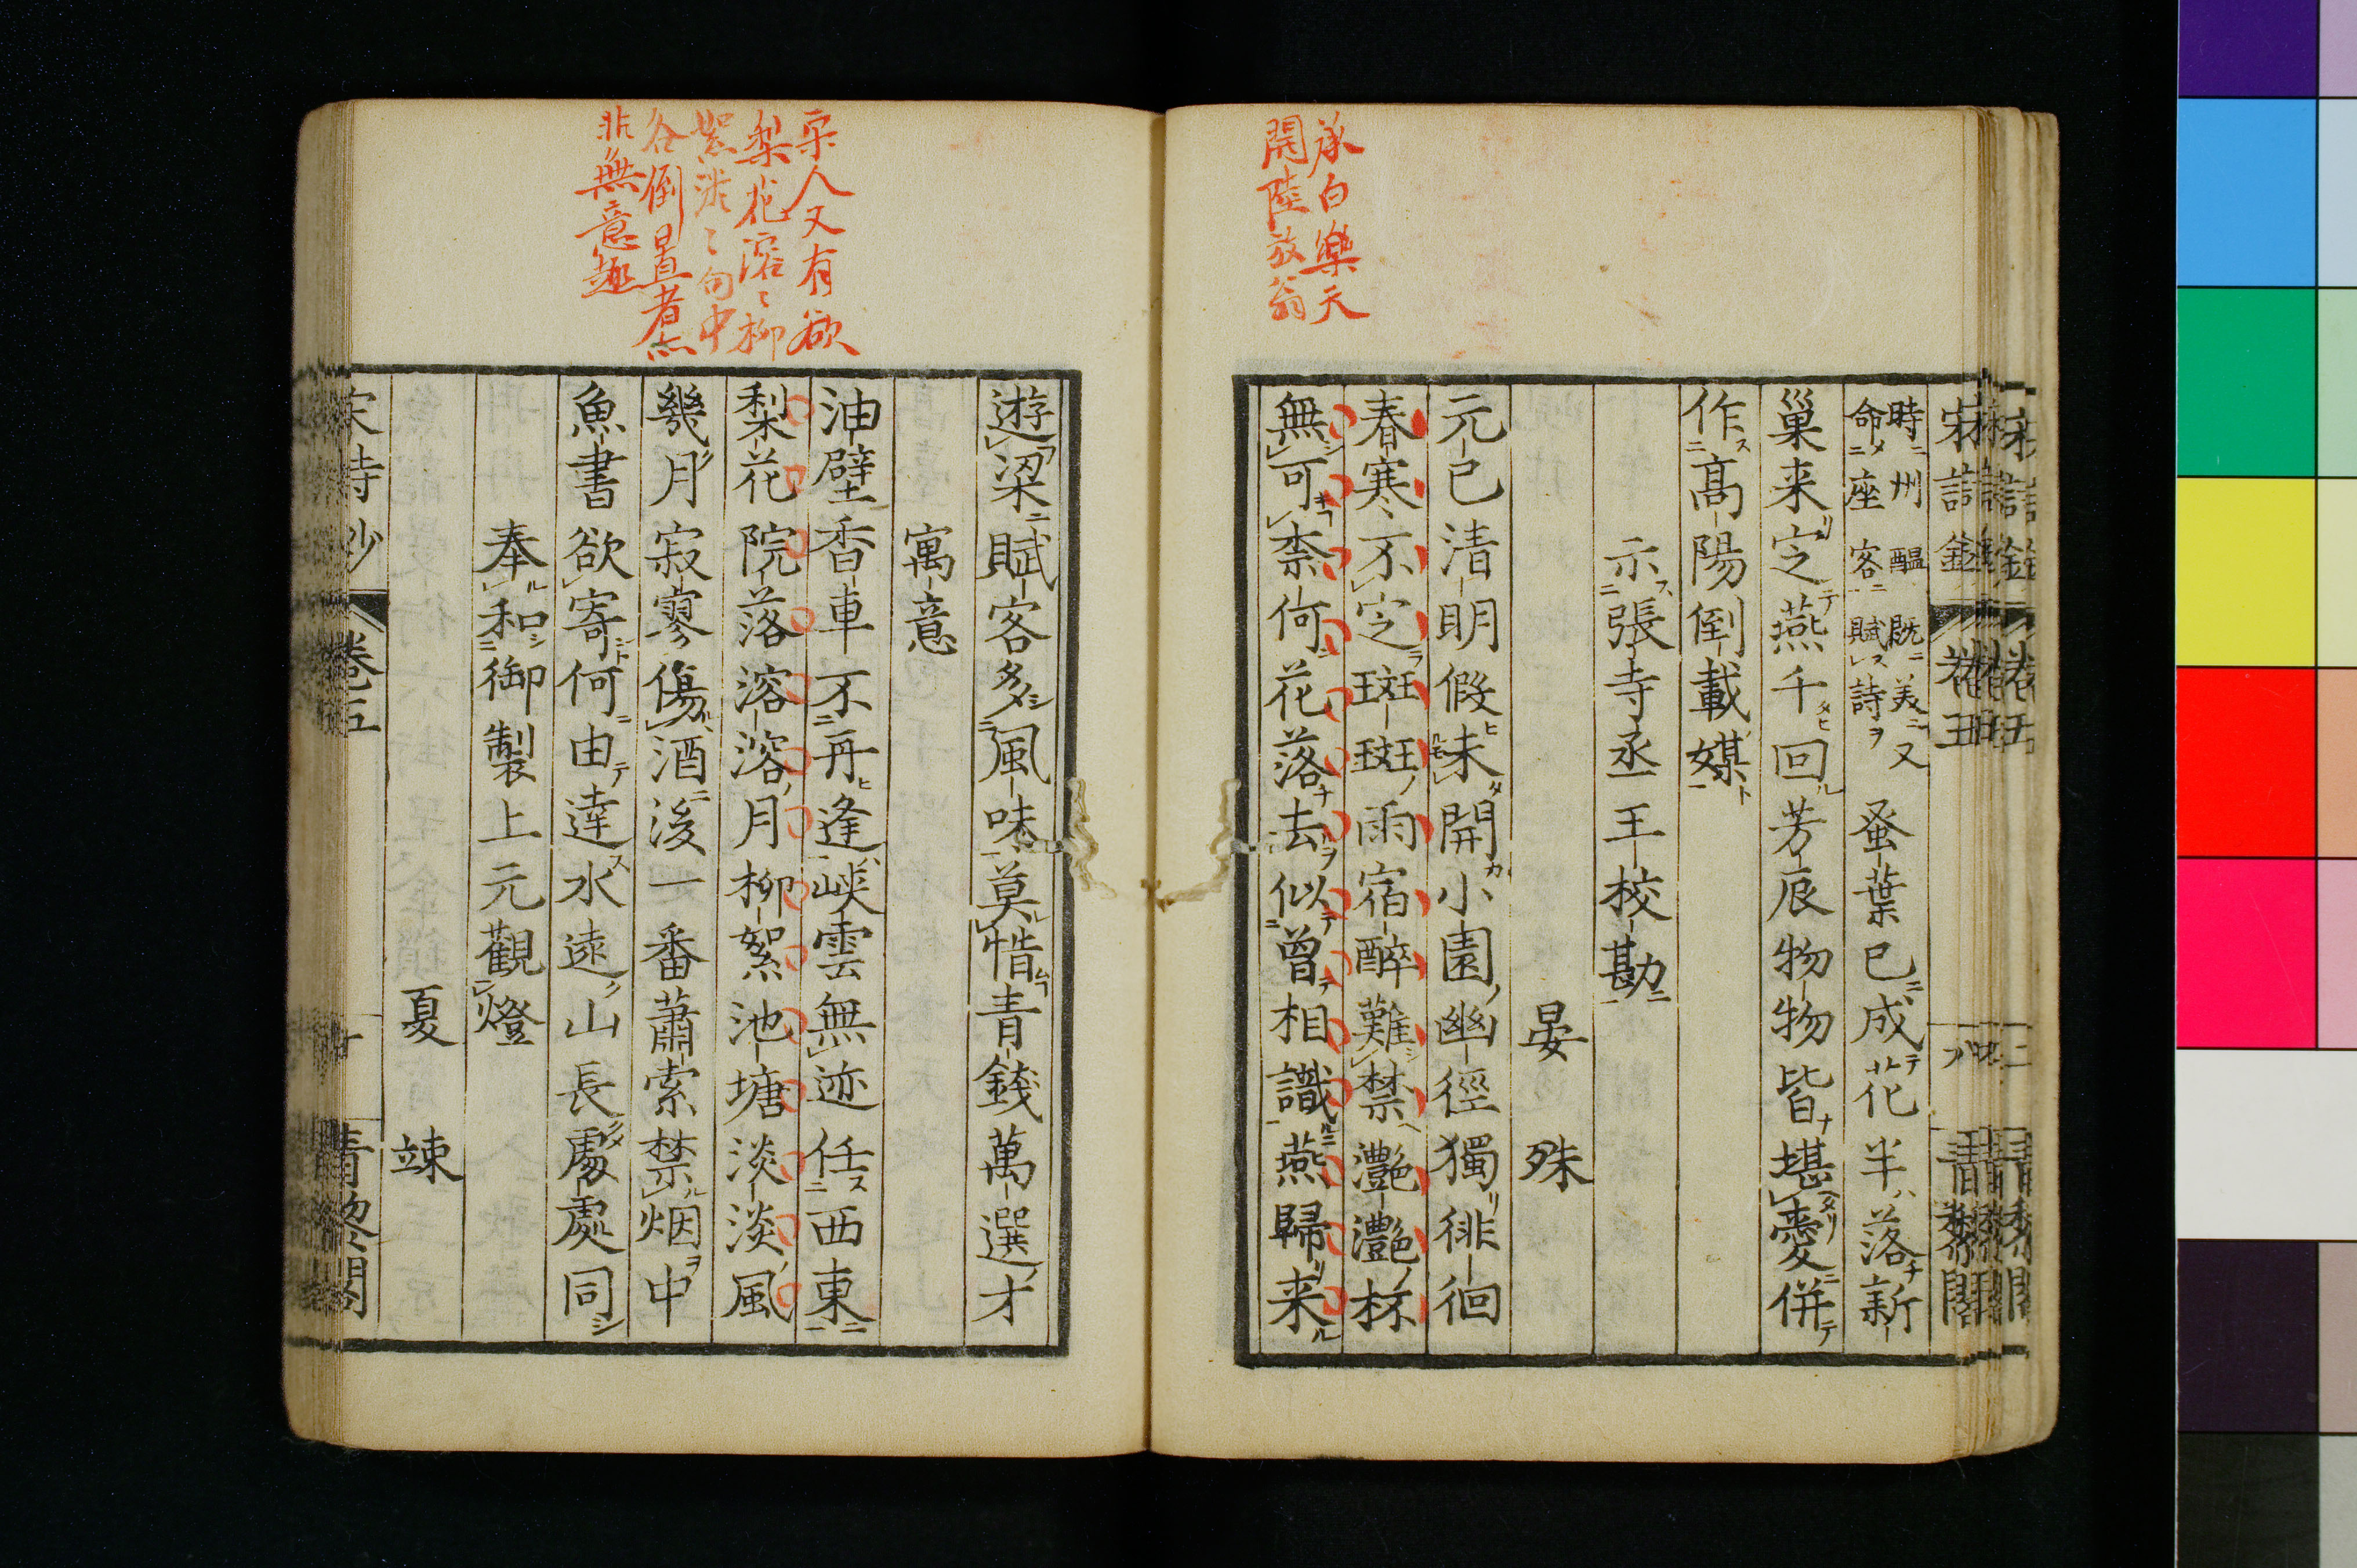 承白樂天
開陸放翁
時州醞既美又
命座客賦詩
蚤葉已成花半落新
巢来定燕千回芳辰物物皆堪愛併
作高陽倒載媒
示張寺丞王校勘
晏殊
元已清明假未開小園幽徑獨徘徊
春寒不定斑斑雨宿醉難禁灔灔杯
無可柰何花落去似曾相識燕歸来
宋人又有欲
梨花溶〻柳
絮淡〻句中
各倒置者然
非無意趣
遊梁賦客多風味莫惜青錢萬選才
寓意
油壁香車不再逢峽雲無迹任西東
梨花院落溶溶月柳絮池塘淡淡風
幾月寂寥傷酒後一番蕭索禁烟中
魚書欲寄何由達水遠山長處處同
奉和御製上元觀燈
夏竦
宋詩鈔 卷五 青黎閣